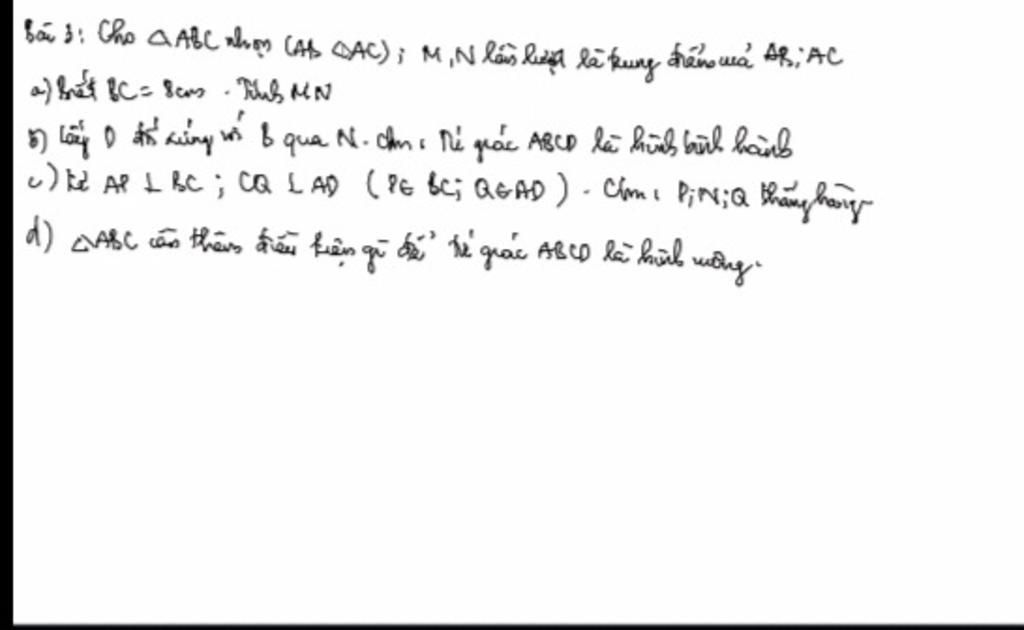 Bài 3: Cho △ABC nhọn (AB △AC); M,N lần lượt là trung điểm của AB; AC
a) Biết BC = 8cm. Tính MN
b) Lấy D đối xứng với B qua N. Cm: Tứ giác ABCD là hình bình hành
c) Kẻ AP ⊥ BC; CQ ⊥ AD (P∈ BC; Q∈AD). Cm: P;N;Q thẳng hàng
d) △ABC cần thêm điều kiện gì để tứ giác ABCD là hình vuông.